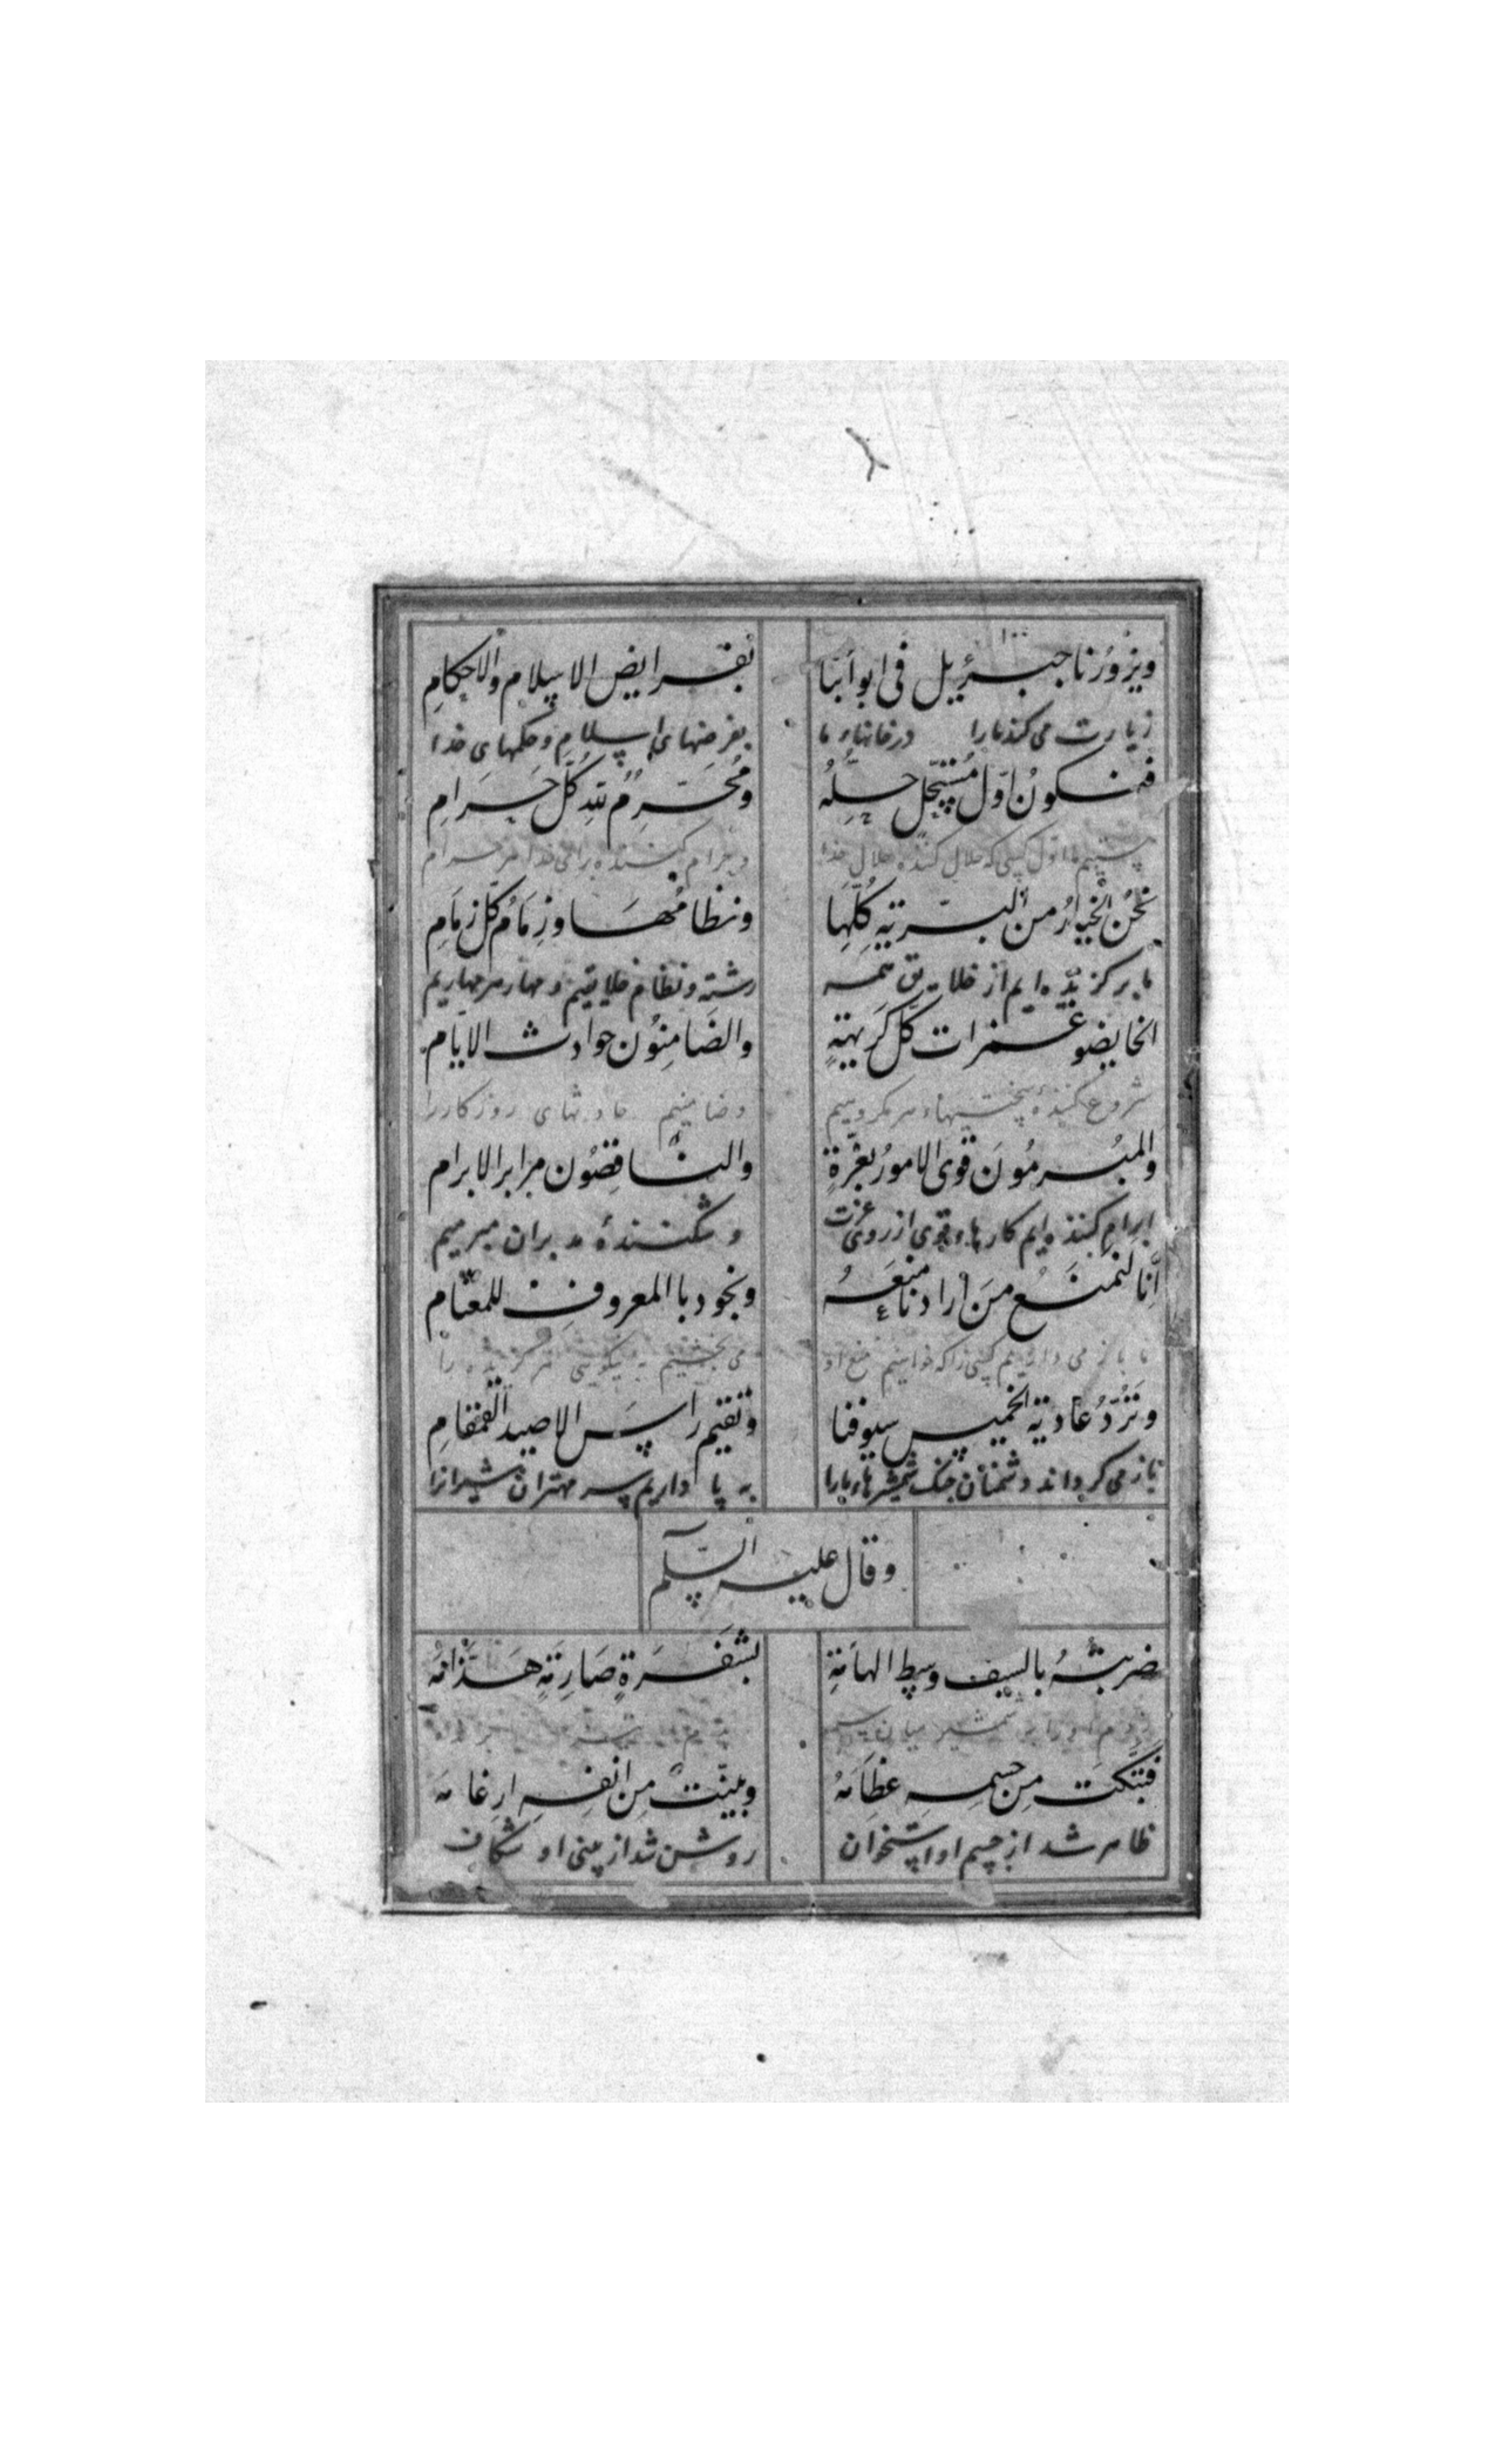 ويزورنا جبرئيل في ابوابنا بفرايض الاسلام والاحكام
زیارت می کند ما را در خانهاء ما بفرضهای اسلام و حکمهای خدا
فنكون اوّل مُستحِلّ حِلّهُ ومُحَرِّمٌ للّه كلّ حَرَامِ
اول کسی که حلال کننده حلال خدا و حرام کننده برای خدا هر حرام
نحنُ الخيارُ من البريّةِ كُلِّها ونظامُها وزِمَامُ كلّ زِمَامِ
ما برگزیده ایم از خلایق همه رشته و نظام خلایقیم و مهار هر مهاریم
الخايضو غمرات كلّ كَريهةٍ والضَامِنُون حوادث الايّام
شروع کننده سختیهاء هر مکروهیم و ضامنیم حادثهای روزگار را
والمُبرمُونَ قوى الامورُ بعِزّةٍ والناقِضُون مرابر الابرام
ابرام کننده ایم کارهاء قوی از روی عزت و شکننده مدبران مبرمیم
اِنّا لنمنَعُ مَن أرادنا منعَهُ ونجود باالمعروفِ للمعتام
ما باز می داریم کسی را که خواهیم منع او می بخشیم به نیکویی مر گزیده را
وتَرُدّ عُاديَة الخميس سيوفنا وتقيم راس الاصيد القمقامِ
باز می گرداند دشمنان جنگ شمشیرهاء ما را به پا داریم سر مهتران شیرانرا
وقال عليه السّلم
ضربتُهُ بالسيف وسط الهامَةِ بشَفرَةٍ صَارِمَةٍ هَذّامَه
زدم او را به شمشیر میان سر
فبَتّكت مِن جسمِه عِظامَهُ وبينّت مِن انفِهِ ارغامَه
ظاهر شد از جسم او استخوان روشن شد از بینی او شکاف